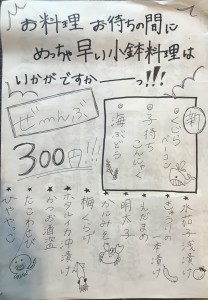 お料理 お待ちの間に
めっちゃ早い小鉢料理は
いかがですかーっ!!!
ぜーんぶ
300円!!!
新
くじらベーコン
子持ちこんにゃく
海ぶどう
水茄子浅漬け
きゅうりの一本漬け
えだまめ
明太子
梅くらげ
ホタルイカ沖漬け
かつお酒盗
たこわさび
ひややっこ